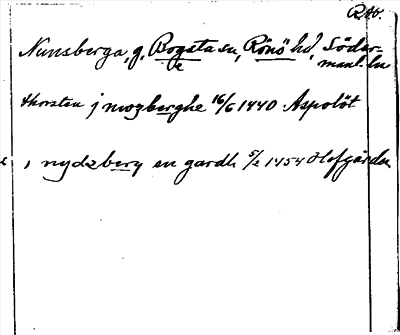 RAO.
Nunsberga, g, Bogsta sn, Rönö hd, Söder-
e manl. ln
thorsten j mogberghe 16/6 1440 Aspolöt
2, i nydzberg en gardh 5/2 1454 Olofgården